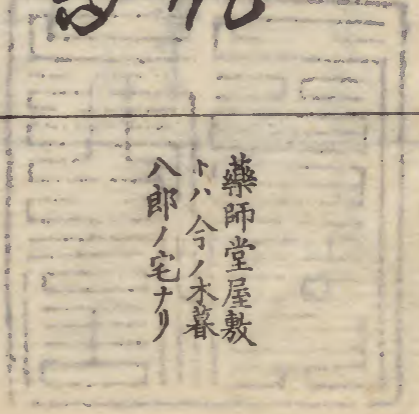 藥師堂屋敷
トハ今ノ木暮
八郎ノ宅ナリ